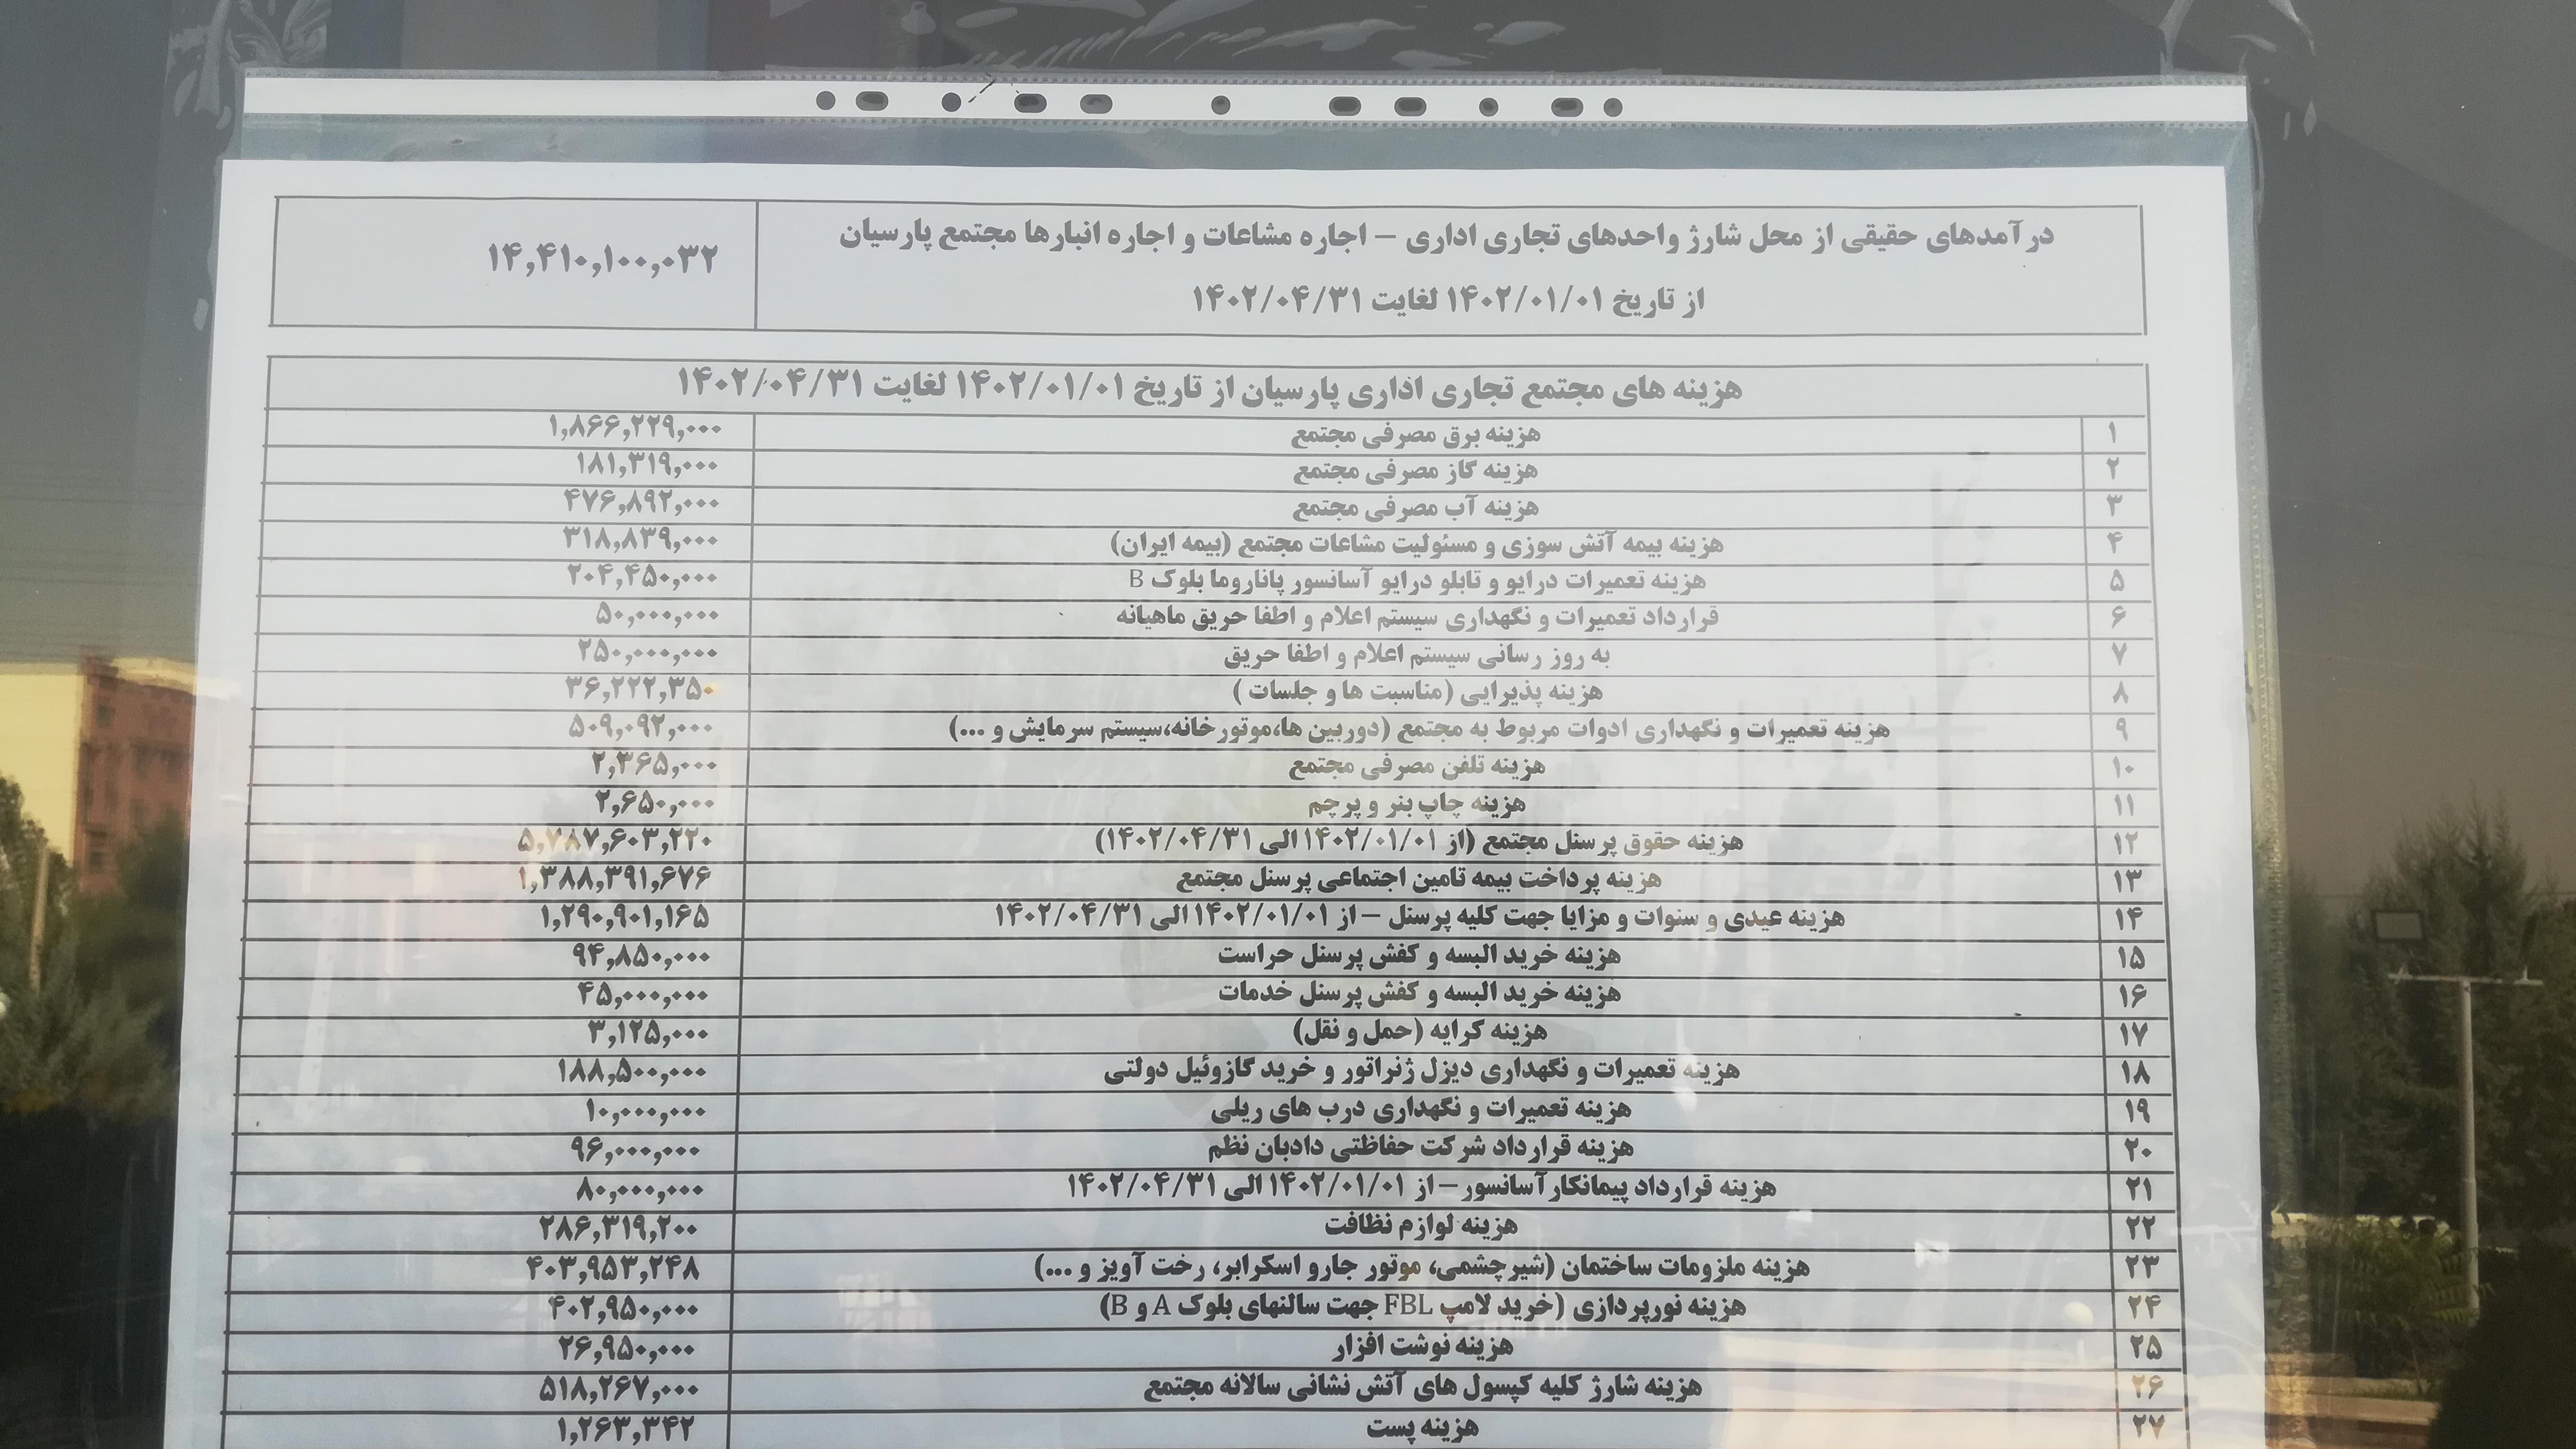 درآمدهای حقیقی از محل شارژ واحدهای تجاری اداری – اجاره مشاعات و اجاره انبارها مجتمع پارسیان
از تاریخ ۱۴۰۲/۰۱/۰۱ لغایت ۱۴۰۲/۰۴/۳۱
۱۴,۴۱۰,۱۰۰,۰۳۲
هزینه های مجتمع تجاری اداری پارسیان از تاریخ ۱۴۰۲/۰۱/۰۱ لغایت ۱۴۰۲/۰۴/۳۱
۱ هزینه برق مصرفی مجتمع ۱,۸۶۶,۲۲۹,۰۰۰
۲ هزینه گاز مصرفی مجتمع ۱۸۱,۳۱۹,۰۰۰
۳ هزینه آب مصرفی مجتمع ۴۷۶,۸۹۲,۰۰۰
۴ هزینه بیمه آتش سوزی و مسئولیت مشاعات مجتمع (بیمه ایران) ۳۱۸,۸۳۹,۰۰۰
۵ هزینه تعمیرات درایو و تابلو درایو آسانسور پاناروما بلوک B ۲۰۴,۴۵۰,۰۰۰
۶ قرارداد تعمیرات و نگهداری سیستم اعلام و اطفا حریق ماهیانه ۵۰,۰۰۰,۰۰۰
۷ به روز رسانی سیستم اعلام و اطفا حریق ۲۵۰,۰۰۰,۰۰۰
۸ هزینه پذیرایی (مناسبت ها و جلسات ) ۳۶,۲۲۲,۳۵۰
۹ هزینه تعمیرات و نگهداری ادوات مربوط به مجتمع (دوربین ها،موتورخانه،سیستم سرمایش و ...) ۵۰۹,۰۹۲,۰۰۰
۱۰ هزینه تلفن مصرفی مجتمع ۲,۳۶۵,۰۰۰
۱۱ هزینه چاپ بنر و پرچم ۲,۶۵۰,۰۰۰
۱۲ هزینه حقوق پرسنل مجتمع (از ۱۴۰۲/۰۱/۰۱ الی ۱۴۰۲/۰۴/۳۱) ۵,۷۸۷,۶۰۳,۲۲۰
۱۳ هزینه پرداخت بیمه تامین اجتماعی پرسنل مجتمع ۱,۳۸۸,۳۹۱,۶۷۶
۱۴ هزینه عیدی و سنوات و مزایا جهت کلیه پرسنل – از ۱۴۰۲/۰۱/۰۱ الی ۱۴۰۲/۰۴/۳۱ ۱,۲۹۰,۹۰۱,۱۶۵
۱۵ هزینه خرید البسه و کفش پرسنل حراست ۹۴,۸۵۰,۰۰۰
۱۶ هزینه خرید البسه و کفش پرسنل خدمات ۴۵,۰۰۰,۰۰۰
۱۷ هزینه کرایه (حمل و نقل) ۳,۱۲۵,۰۰۰
۱۸ هزینه تعمیرات و نگهداری دیزل ژنراتور و خرید گازوئیل دولتی ۱۸۸,۵۰۰,۰۰۰
۱۹ هزینه تعمیرات و نگهداری درب های ریلی ۱۰,۰۰۰,۰۰۰
۲۰ هزینه قرارداد شرکت حفاظتی دادبان نظم ۹۶,۰۰۰,۰۰۰
۲۱ هزینه قرارداد پیمانکارآسانسور – از ۱۴۰۲/۰۱/۰۱ الی ۱۴۰۲/۰۴/۳۱ ۸۰,۰۰۰,۰۰۰
۲۲ هزینه لوازم نظافت ۲۸۶,۳۱۹,۲۰۰
۲۳ هزینه ملزومات ساختمان (شیرچشمی، موتور جارو اسکرابر، رخت آویز و ...) ۴۰۳,۹۵۳,۲۴۸
۲۴ هزینه نورپردازی (خرید لامپ FBL جهت سالنهای بلوک A و B) ۴۰۲,۹۵۰,۰۰۰
۲۵ هزینه نوشت افزار ۲۶,۹۵۰,۰۰۰
۲۶ هزینه شارژ کلیه کپسول های آتش نشانی سالانه مجتمع ۵۱۸,۲۶۷,۰۰۰
۲۷ هزینه پست ۱,۲۶۳,۳۴۲